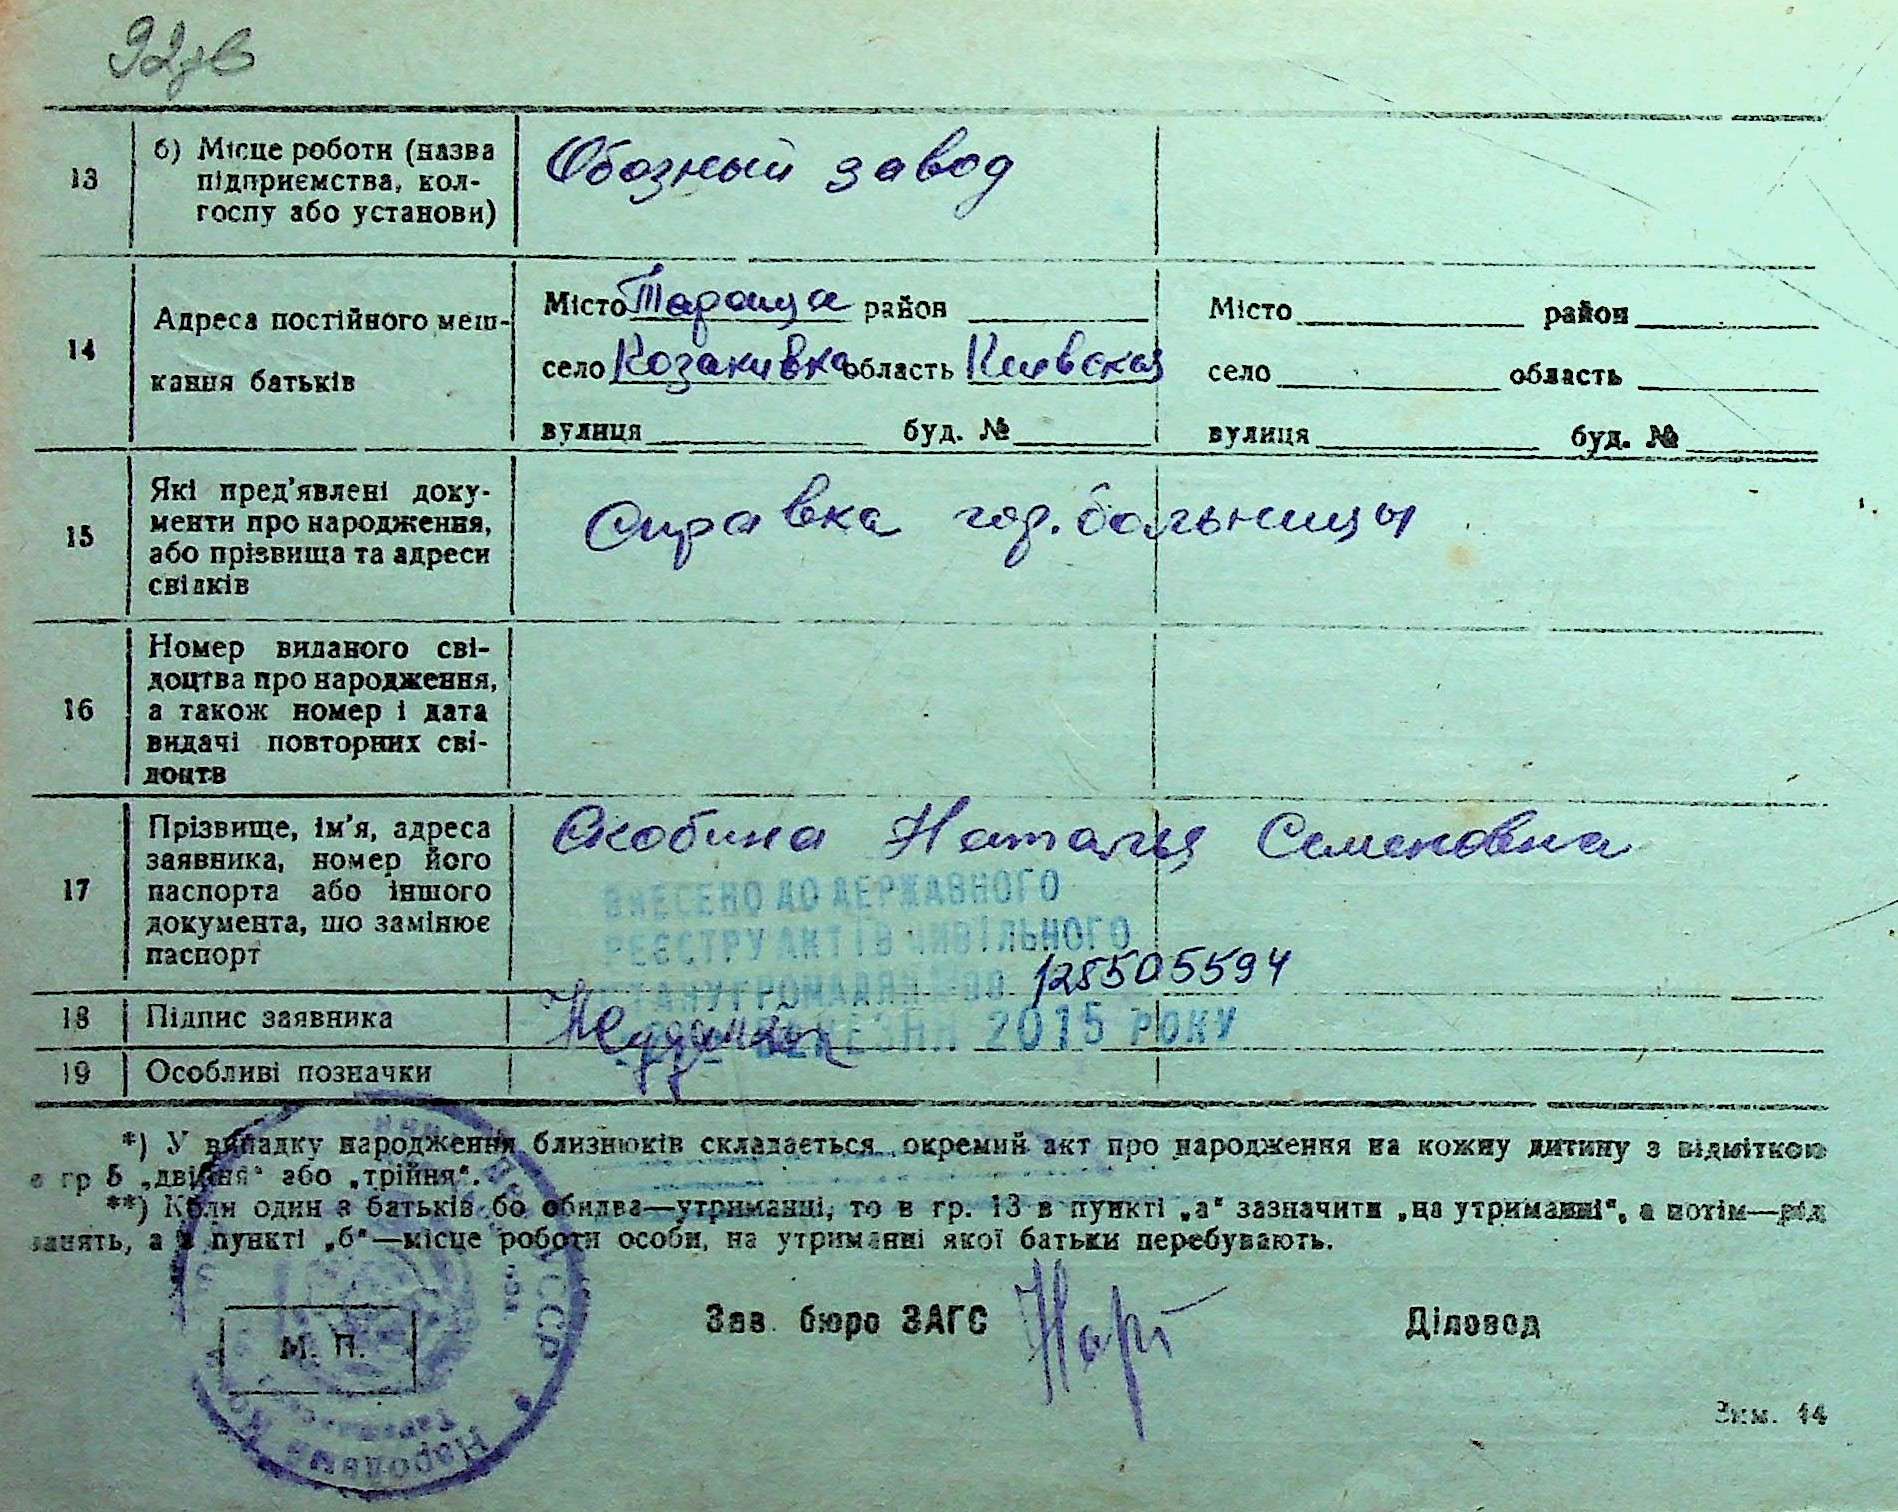 92зв
13
б) Місце роботи (назва
підприємства, кол-
госпу або установи)
Обозный завод
14
Адреса постійного меш-
кання батьків
Місто Тараща район
село Козакивка область Киевская
вулиця буд. №
Місто район
село область
вулиця буд. №
15
Які пред'явлені доку-
менти про народження,
або прізвища та адреси
свідків
Справка гор. больницы
16
Номер виданого сві-
доцтва про народження,
а також номер і дата
видачі повторних сві-
доцтв
17
Прізвище, ім'я, адреса
заявника, номер його
паспорта або іншого
документа, що замінює
паспорт
Скобина Наталья Семеновна
ВНЕСЕНО ДО ДЕРЖАВНОГО
РЕЄСТРУ АКТІВ ЦИВІЛЬНОГО
СТАНУ ГРОМАДЯН 128505594
БЕРЕЗНЯ 2015 РОКУ
18
Підпис заявника
19
Особливі позначки
*) У випадку народження близнюків складається окремий акт про народження на кожну дитину з відміткою
в гр 5 „двійня“ або „трійня“.
**) Коли один з батьків бо обидва—утриманці, то в гр. 13 в пункті „а“ зазначити „на утриманні“, а потім—рід
занять, а в пункті „б“—місце роботи особи, на утриманні якої батьки перебувають.
М. П.
Зав. бюро ЗАГС
Діловод
Зим. 14
УССР
Народний